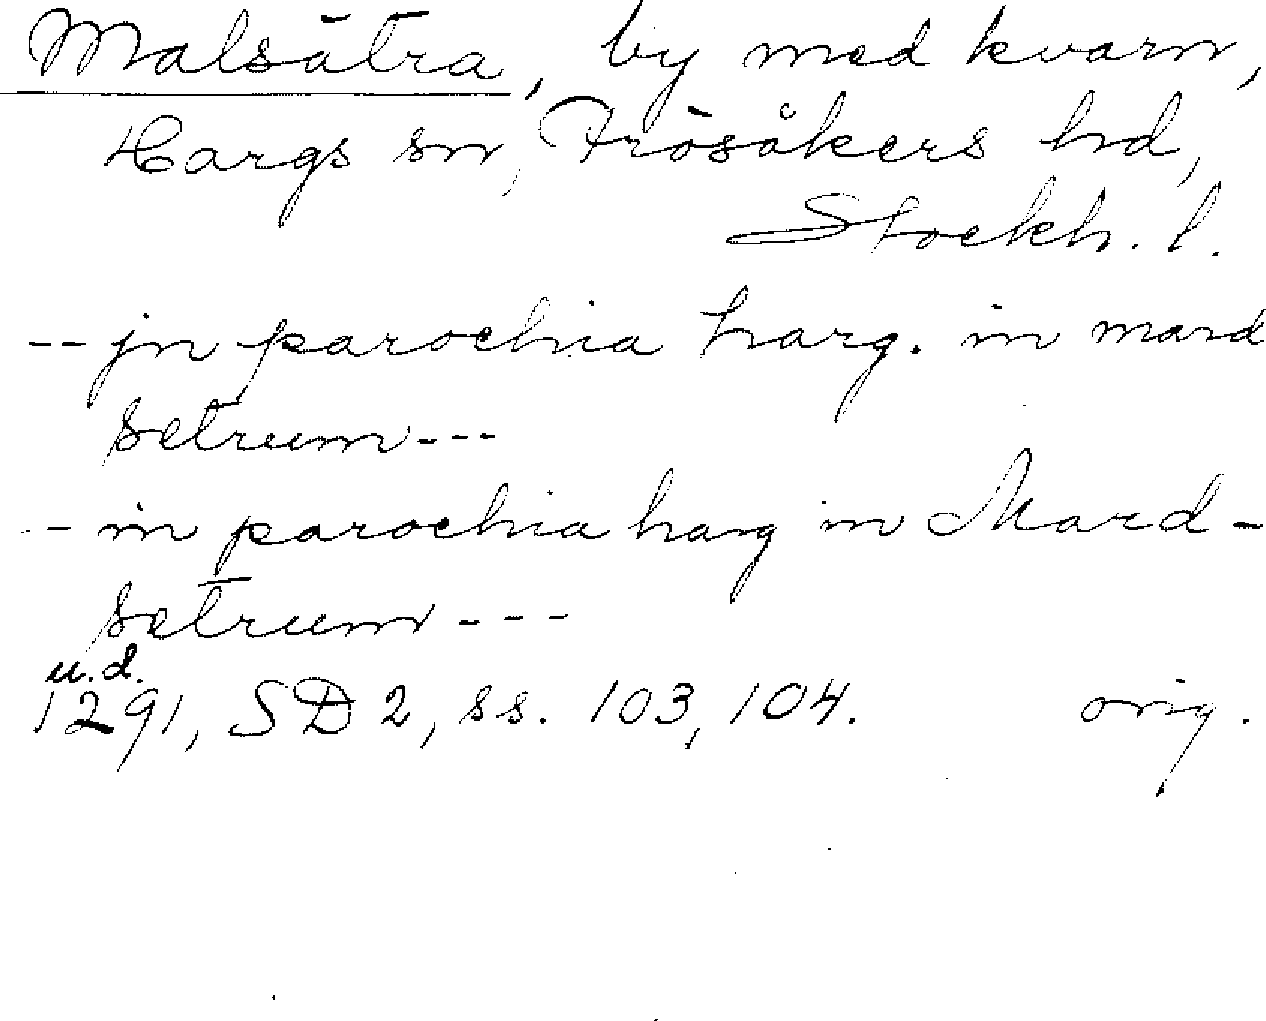 Malsätra, by med kvarn,
Hargs sn, Frösåkers hd,
Stockh. l.
-- jn parochia harg. in mard
setrum ---
-- in parochia harg in Mard-
setrum ---
u.d.
1291, SD 2, ss. 103, 104. orig.